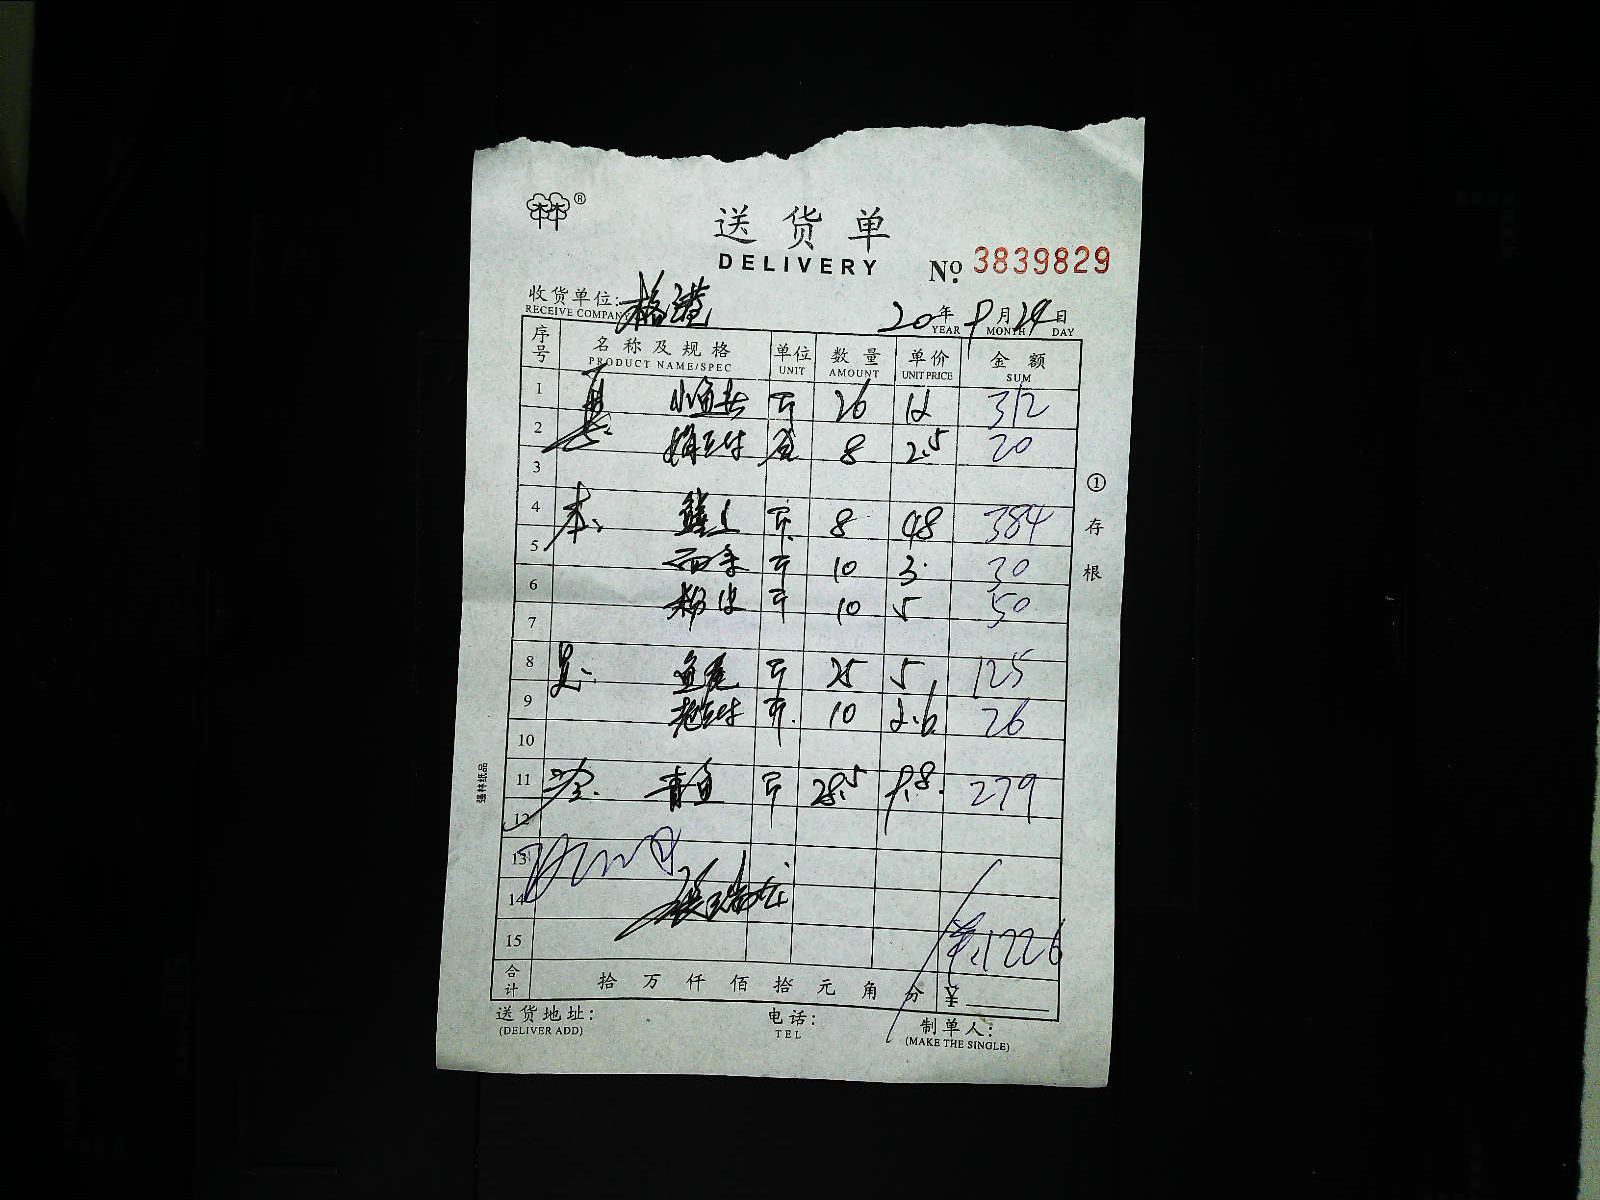 林林®
送货单
DELIVERY
№ 3839829
收货单位:
RECEIVE COMPANY
20年9月24日
YEAR MONTH DAY
序号 名称及规格 单位 数量 单价 金额
PRODUCT NAME/SPEC UNIT AMOUNT UNIT PRICE SUM
1 小鱼头 斤 26 12 312
2 盒 8 2.5 20
3
4 本: 斤 8 48 384
5 西芹 斤 10 3 30
6 粉皮 斤 10 5 50
7
8 鱼尾 斤 25 5 125
9 老豆腐 斤 10 2.6 26
10
11 青鱼 斤 28.5 9.8 279
12
13
14
15 1226
合计 拾 万 仟 佰 拾 元 角 分 ¥
送货地址: 电话: 制单人:
(DELIVER ADD) TEL (MAKE THE SINGLE)
①存根
强林纸品